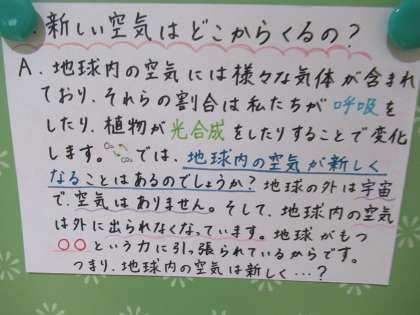 新しい空気はどこからくるの?
A.地球内の空気には様々な気体が含まれ
ており、それらの割合は私たちが呼吸を
したり、植物が光合成をしたりすることで変化
します。では、地球内の空気が新しく
なることはあるのでしょうか?地球の外は宇宙
で、空気はありません。そして、地球内の空気
は外に出られなくなっています。地球がもつ
○○という力に引っ張られているからです。
つまり、地球内の空気は新しく…?